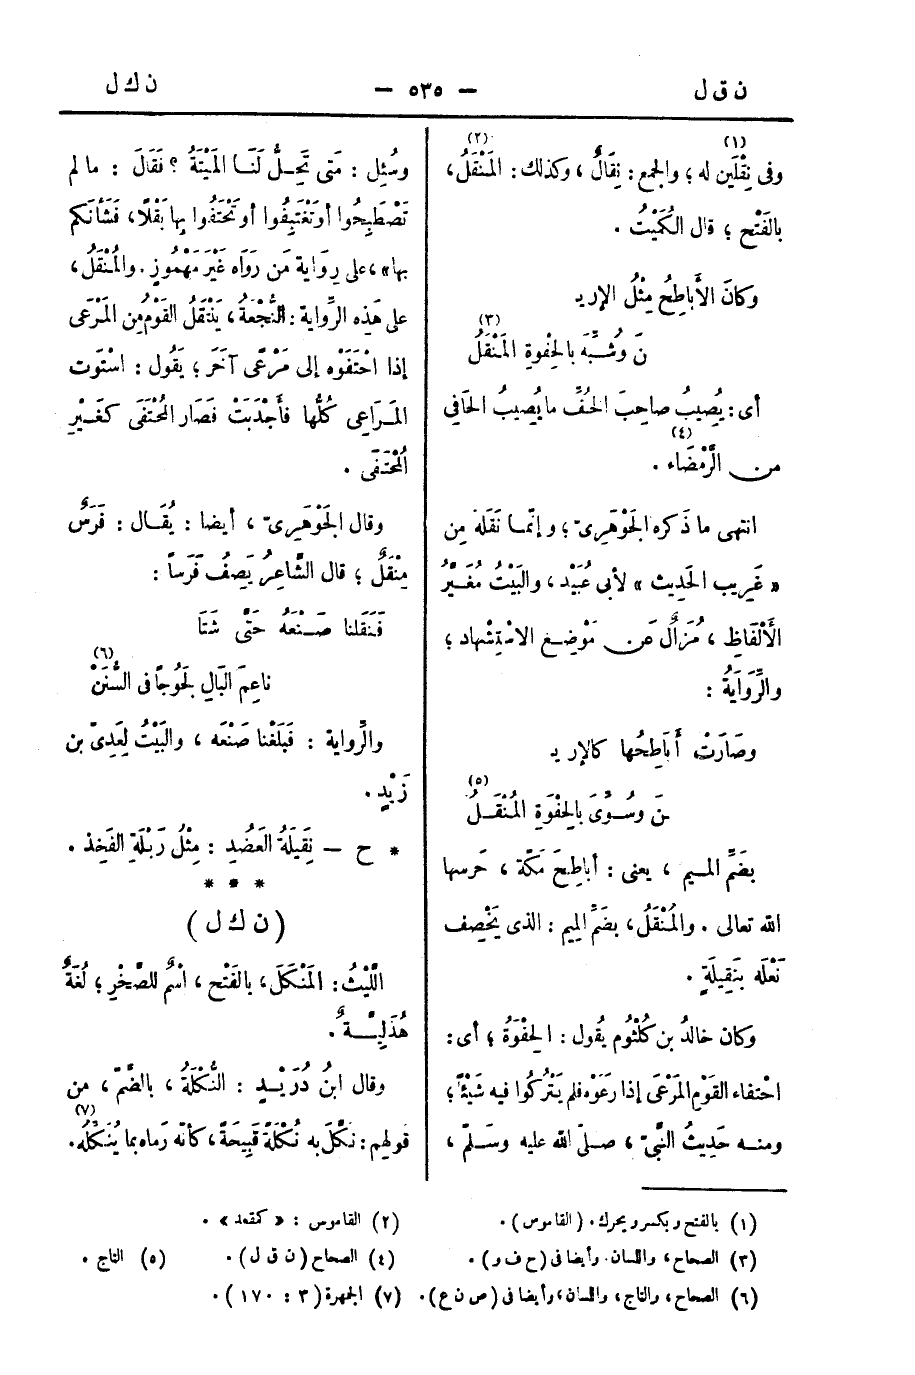 ن ق ل — ٥٣٥ — ن ك ل
(١) (٢)
وفى نِقْلَين له ؛ والجمع : نِقَالٌ ، وكذلك : المَنْقَلُ ،
بالفَتْح ؛ قال الكُمَيْتُ .
وكانَ الأَباطِحُ مِثْلُ الإر يـ
(٣)
نَ وشُبِّهَ بالحِفْوةِ المَنْقَلُ
أى : يُصِيبُ صاحِبَ الخُفِّ ما يُصِيبُ الحَافِي
(٤)
من الرَّمْضَاء .
انتهى ما ذَكره الجَوْهَرِىّ ؛ و إنّما نَقَلَه مِن
« غَرِيب الحَدِيث » لأبى عُبَيْد ، والبَيْتُ مُغَيَّرُ
الأَلْفَاظِ ، مُزَالٌ عَن مَوْضِع الاسْتِشْهاد ؛
والرِّوَايَةُ :
وصَارَتْ أَبَاطِحُها كالإر يـ
(٥)
ـنَ وسُوِّىَ بالحِفْوَةِ المُنْقَلُ
بضَمِّ الميم ، يعنى : أباطِحَ مَكّة ، حَرسها
الله تعالى . والمُنْقَلُ ، بضَمِّ المِيم : الذى يَخْصِف
نَعْلَه بنَقِيلَةٍ .
وكان خالدُ بن كُلْثُوم يقُول : الحِفْوَةُ ؛ أى :
احْتفاء القَوْمِ المَرْعَى إذا رَعَوْه فلم يَتْرُكوا فيه شَيْئًا ؛
ومنه حَدِيثُ النَّبىّ ، صلّى الله عليه وسَلَّم ،
وسُئِل : مَتى تَحِلُّ لَنَا المَيْتَةُ ؟ فَقَالَ : ما لم
تَصْطَبِحُوا أو تَغْتَبِقُوا أو تَحْتَفُوا بِها بَقْلًا ، فَشَأنَكم
بها » ، على رِوَاية مَن رَوَاه غَيْرَ مَهْمُوزٍ . والمُنْقَلُ ،
على هَذِه الرِّواية : النُّجْعَةُ ، يَنْتَقِلُ القَوْمُ مِن المَرْعَى
إذا احْتَفَوْه إلى مَرْعًى آخَرَ ؛ يَقُول : اسْتَوت
المَرَاعِى كُلُّها فأَجْدَبَتْ فصَار المُحْتَفَى كغَيْرِ
المُحْتَفَى .
وقال الجَوْهَرِىّ ، أيضا : يُقَال : فَرَسٌ
مِنْقَلٌ ؛ قال الشَّاعِرُ يَصِفُ فَرَساً :
فَنَقَلنا صَنْعَهُ حَتَّى شَتَا
(٦)
ناعِمَ البَالِ لَجُوجًا فى السَّنَنْ
والرِّواية : فَبَلَغْنا صَنْعَه ، والبَيْتُ لِعَدِىّ بن
زَيْدٍ .
* ح — نَقِيلَةُ العَضُدِ : مِثْلُ رَبْلَةِ الفَخِذ .
* * *
( ن ك ل )
اللَّيْثُ : المَنْكَلَ ، بالفَتْح ، اسْمٌ للصَّخْرِ ؛ لُغَةٌ
هُذَلِيَّةٌ .
وقال ابنُ دُرَيْدٍ : النُّكْلَةُ ، بالضّمّ ، من
(٧)
قولهم : نَكَّلَ به نُكْلَةً قَبِيحَةً ، كأنّه رَماه بما يُنَكِّلُه .
(١) بالفتح و بكسر ويحرك . ( القاموس ) . (٢) القاموس : « كمقعد » .
(٣) الصحاح ، واللسان . وأيضا فى ( ح ف و ) . (٤) الصحاح ( ن ق ل ) . (٥) التاج .
(٦) الصحاح ، والتاج ، واللسان ، وأيضا فى ( ص ن ع ) . (٧) الجمهرة ( ٣ : ١٧٠ ) .